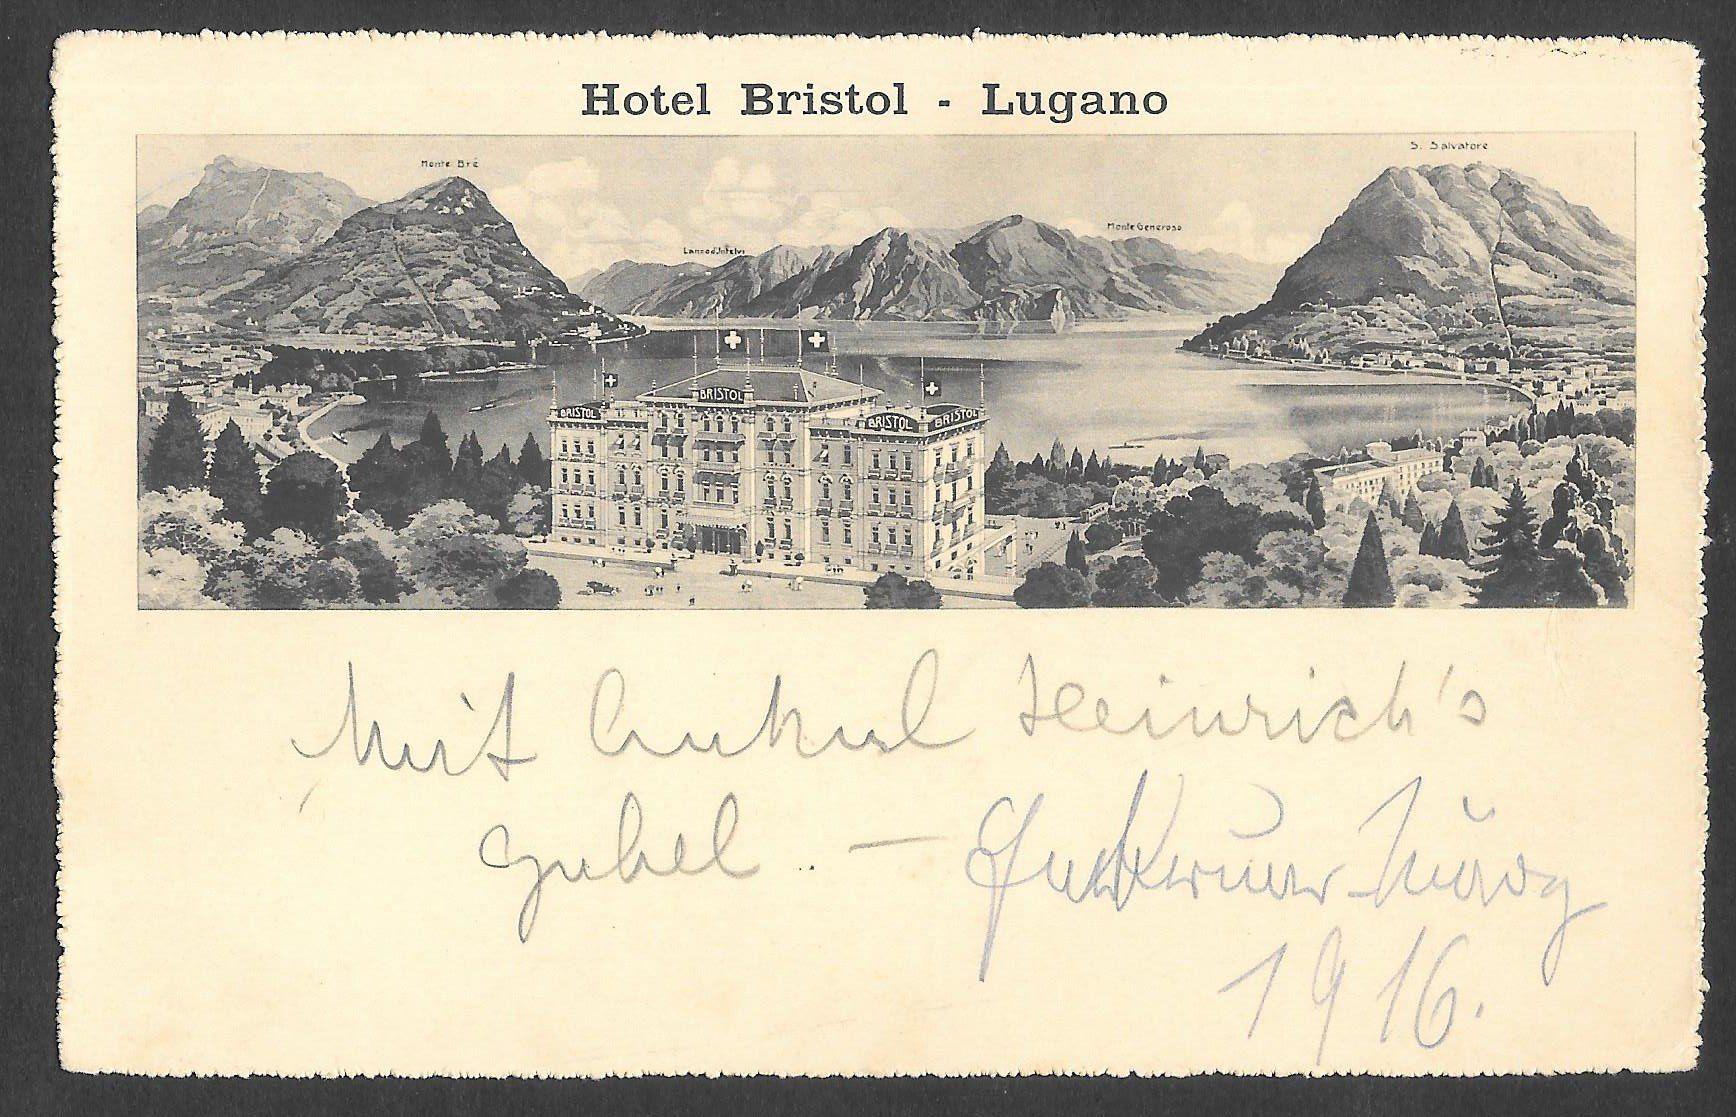 Hotel Bristol - Lugano
Monte Brè
S. Salvatore
Lanzo d'Intelvi
Monte Generoso
BRISTOL
BRISTOL
BRISTOL
BRISTOL
Mit Onkel Heinrich's
1916.